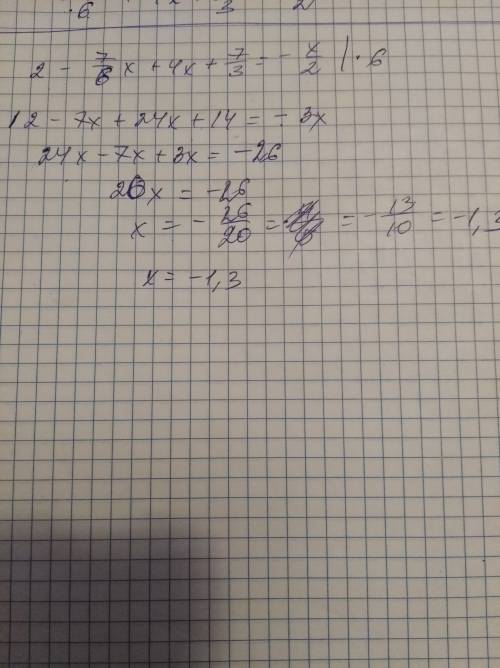 .6 3 2
2 - 7/6 x + 4x + 7/3 = - x/2 | · 6
12 - 7x + 24x + 14 = - 3x
24x - 7x + 3x = -26
20x = -26
x = - 26/20 = = - 13/10 = -1,3
x = -1,3